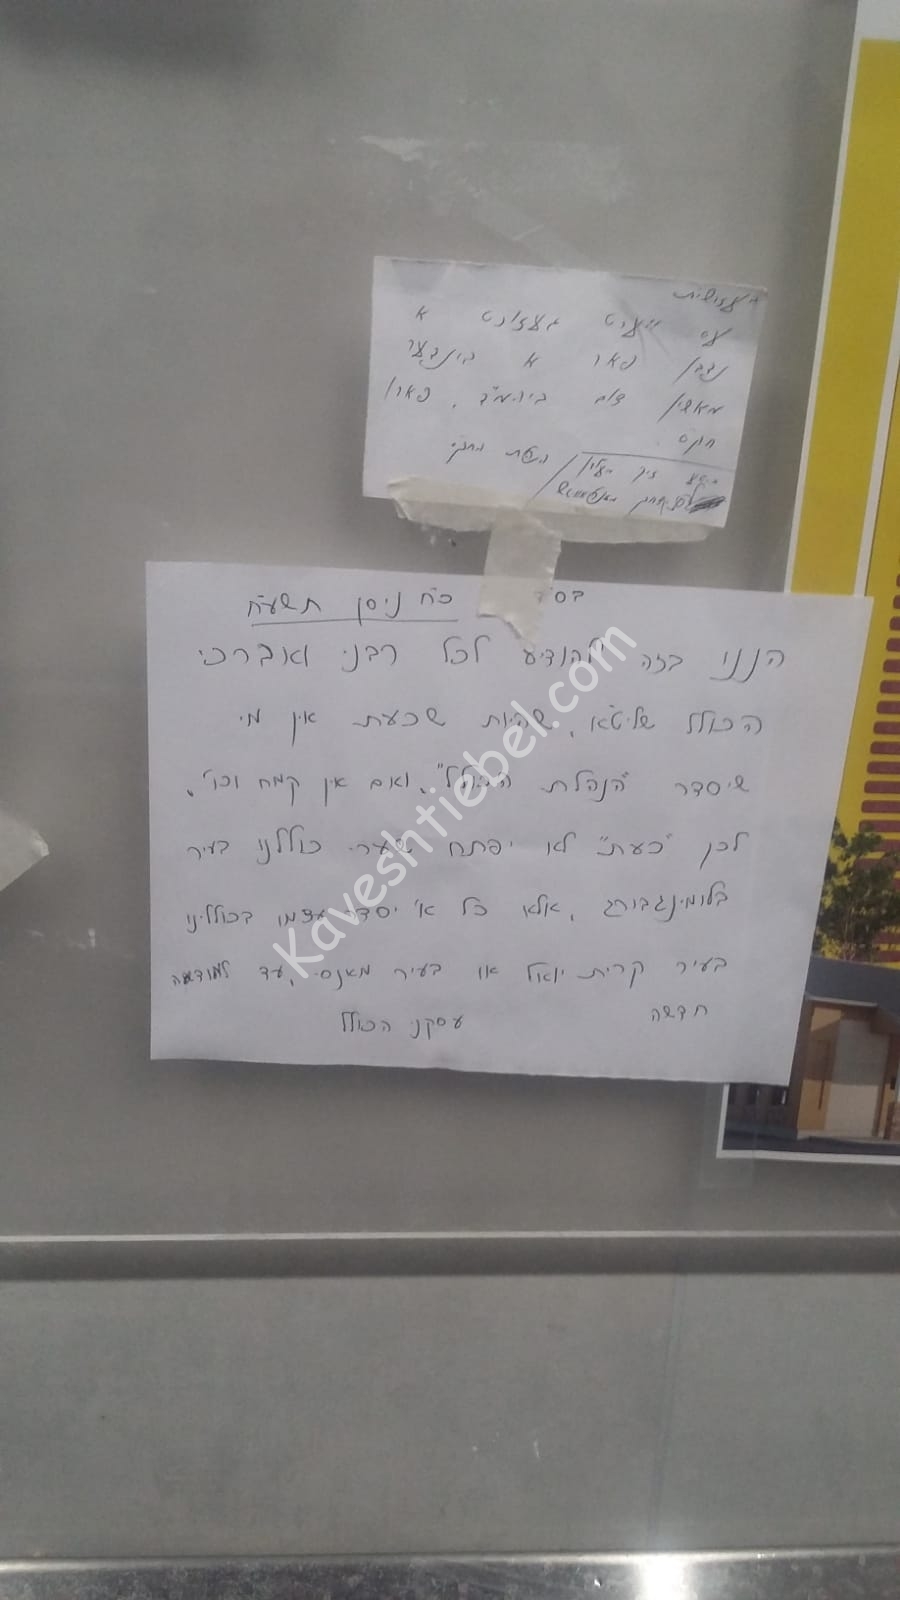 עס ווערט געזוכט א
נדבן פאר א בינדער
מאשין צום ביהמ"ד, פארן
חוקס.
בס"ד כ"ח ניסן תשע"ח
הננו בזה להודיע לכל רבני ואברכי
הכולל שליט"א, שהיות שכעת אין מי
שיסדר "הנהלת הכולל", ואם אין קמח וכו',
לכן "כעת" לא יפתח שערי כוללנו בעיר
בלומינגבורג, אלא כל א' יסדר עצמו בכוללינו
בעיר קרית יואל או בעיר מאנסי, עד למודעה
חדשה
עסקני הכולל
Kaveshtiebel.com